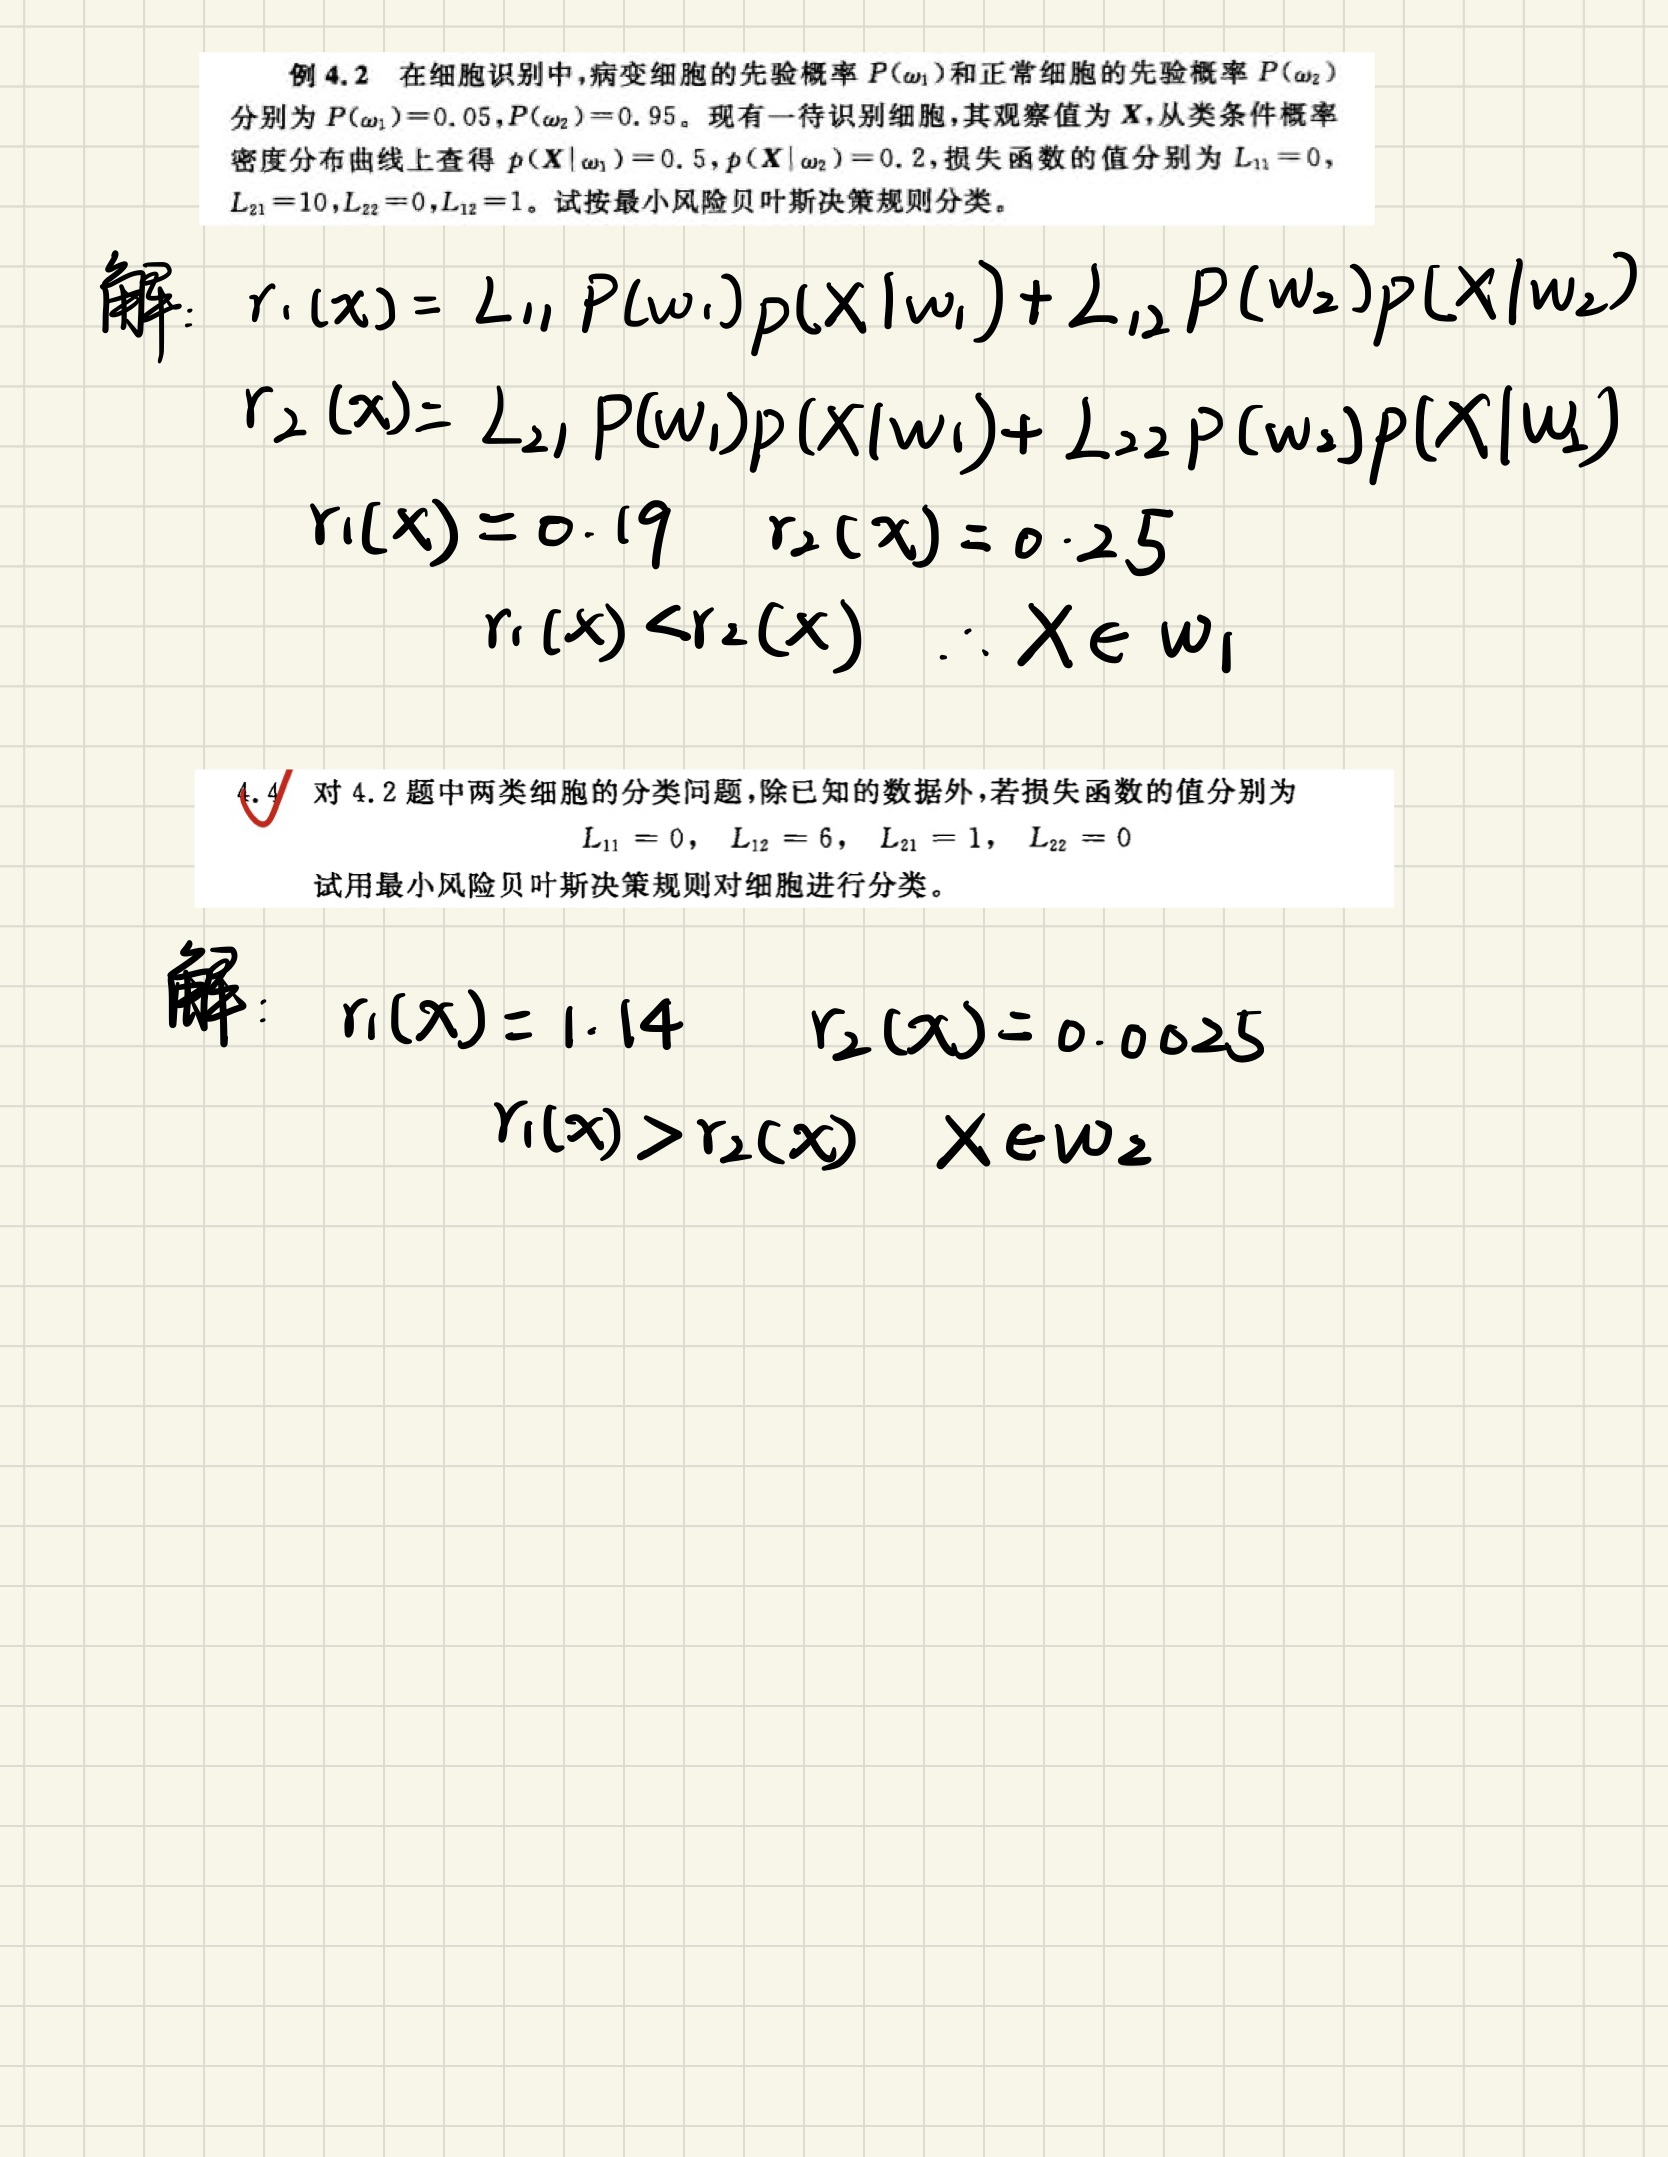 例 4.2 在细胞识别中,病变细胞的先验概率 P(ω₁)和正常细胞的先验概率 P(ω₂)
分别为 P(ω₁)=0.05,P(ω₂)=0.95。现有一待识别细胞,其观察值为 X,从类条件概率
密度分布曲线上查得 p(X|ω₁)=0.5,p(X|ω₂)=0.2,损失函数的值分别为 L₁₁=0,
L₂₁=10,L₂₂=0,L₁₂=1。试按最小风险贝叶斯决策规则分类。
解: r₁(x) = L₁₁ P(w₁)p(X|w₁)+ L₁₂ P(w₂)p(X|w₂)
r₂(x)= L₂₁ P(w₁)p(X|w₁)+ L₂₂ P(w₂)p(X|w₂)
r₁(x) = 0.19 r₂(x) = 0.25
r₁(x) < r₂(x) ∴ X∈ w₁
4.4 对 4.2 题中两类细胞的分类问题,除已知的数据外,若损失函数的值分别为
L₁₁ = 0, L₁₂ = 6, L₂₁ = 1, L₂₂ = 0
试用最小风险贝叶斯决策规则对细胞进行分类。
解: r₁(x) = 1.14 r₂(x) = 0.0025
r₁(x) > r₂(x) X∈w₂